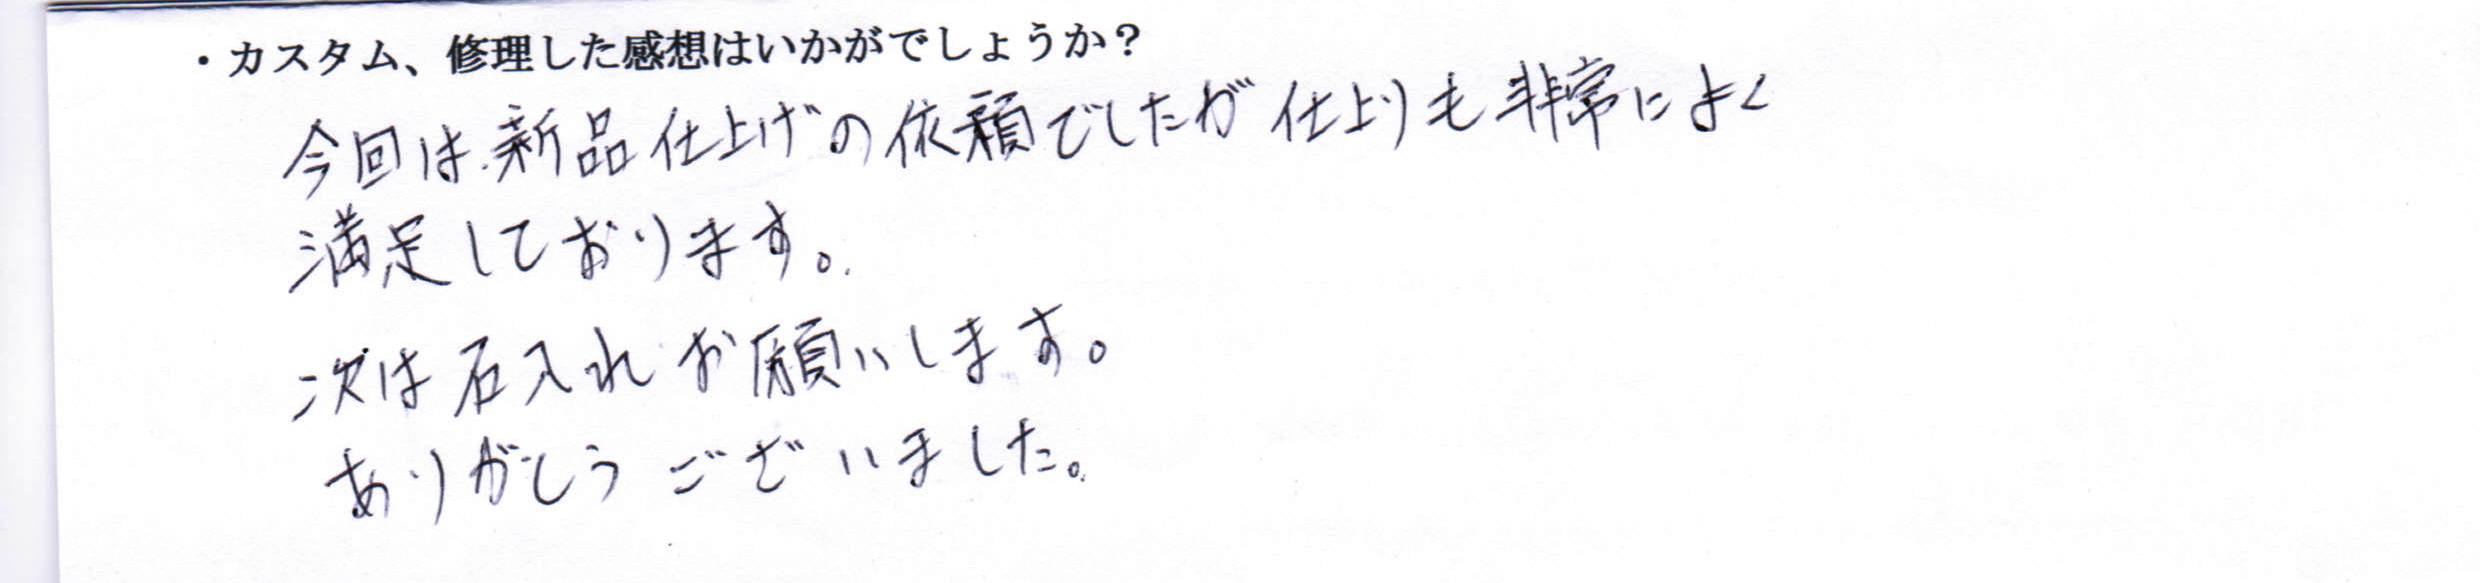 ・カスタム、修理した感想はいかがでしょうか？
今回は、新品仕上げの依頼でしたが仕上りも非常によく
満足しております。
次は石入れお願いします。
ありがとうございました。